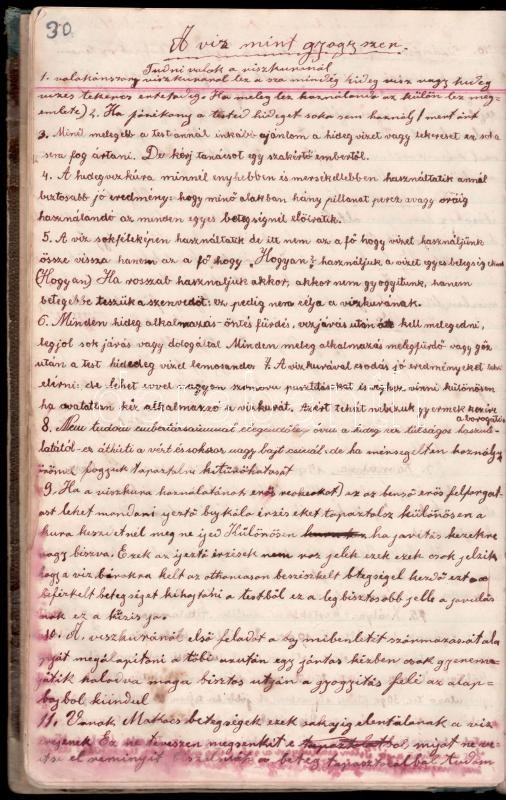 30
A viz mint gyogyszer.
Tudni valok a vizkuránál
1. valahánszor vizkuránál lez a szo mindig hideg viz vagy hideg
vizes tekercs értetödig. Ha meleg lez használando az külön lez meg-
emlete) 2. Ha fázékony a tested hideget soha sem használj / mert árt
3. Minél melegebb a test annál inkább ajánlom a hideg vizet vagy tekercset ez soha
sem fog ártani. De kérj tanácsot egy szakértö embertöl.
4. A hidegvizkúra minnél enyhébben és mersékeltebben használtatik annál
biztosabb jó eredmény: hogy minö alakban hány pillanat percz avagy oráig
használando az minden egyes betegségnél elöiratik.
5. A viz sokféleképen használtatik de itt nem az a fö hogy vizet használjunk
össze vissza hanem az a fö hogy „Hogyan? használjuk a vizet egyes betegség ellen
(Hogyan) Ha rosszab használjuk akkor, akkor nem gyogyitunk, hanem
betegebbé tesszük a szenvedöt: ez pedig nem célja a vizkurának.
6. Minden hideg alkalmazás-öntés fürdés, vizjárás után át kell melegedni,
legjob sok járás vagy dologáltal Minden meleg alkalmazás melegfürdö vagy göz
után a test hidedeg vizel lemosando 7. A vizkurával csodás jó eredményeket lehet
elérni: de lehet evvel nagyon szomoru pusztitást is végbe vinni különösen
ha avatatlan kéz alkalmazza a vizkurát. Azért tehát ne bizuk gyermek kezire
a borogatást
8. Nem tudom embertársaimmal elégendöle ovni a hideg viz túlságos haszná-
latától-ez áthüti a vért és sokszor nagy bajt csinál: de ha mérségelten használj
örömel foggjuk tapasztalni kitünöhatását
9. Ha a vizkura használatánok erös reakciok) ez az benső erös felforgat-
ást lehet mondani ijeztö bajkálo érzéseket tapaztolsz különösen a
kura kezdetnél meg ne ijed Különösen ha javitás kezekre
vagy bizva. Ezek az ijeztö érzések nem roz jelek ezek ezek csak jelzik
hogy a viz bárokra kelt az otthonason beniszkelt betegségel kezdö ezt a
befészkelt betegséget kihajtani a testböl ez a legbiztosobb jelle a javulás
nak ez a krizis ja.
10. A vizkuránál elsö feladat a baj mibenlétit származását ala
pját megálapitani a többi azután egy jártas kézben csak gyerem
játék halodva maga biztos utján a gyogyitás felé az alap-
bajbol kiindul
11. Vanok Makacs betegségek ezek sokajig elentálanak a viz
erejének Ez ne tévesszen megsenkit e tapaztolatbol, mijat ne ve-